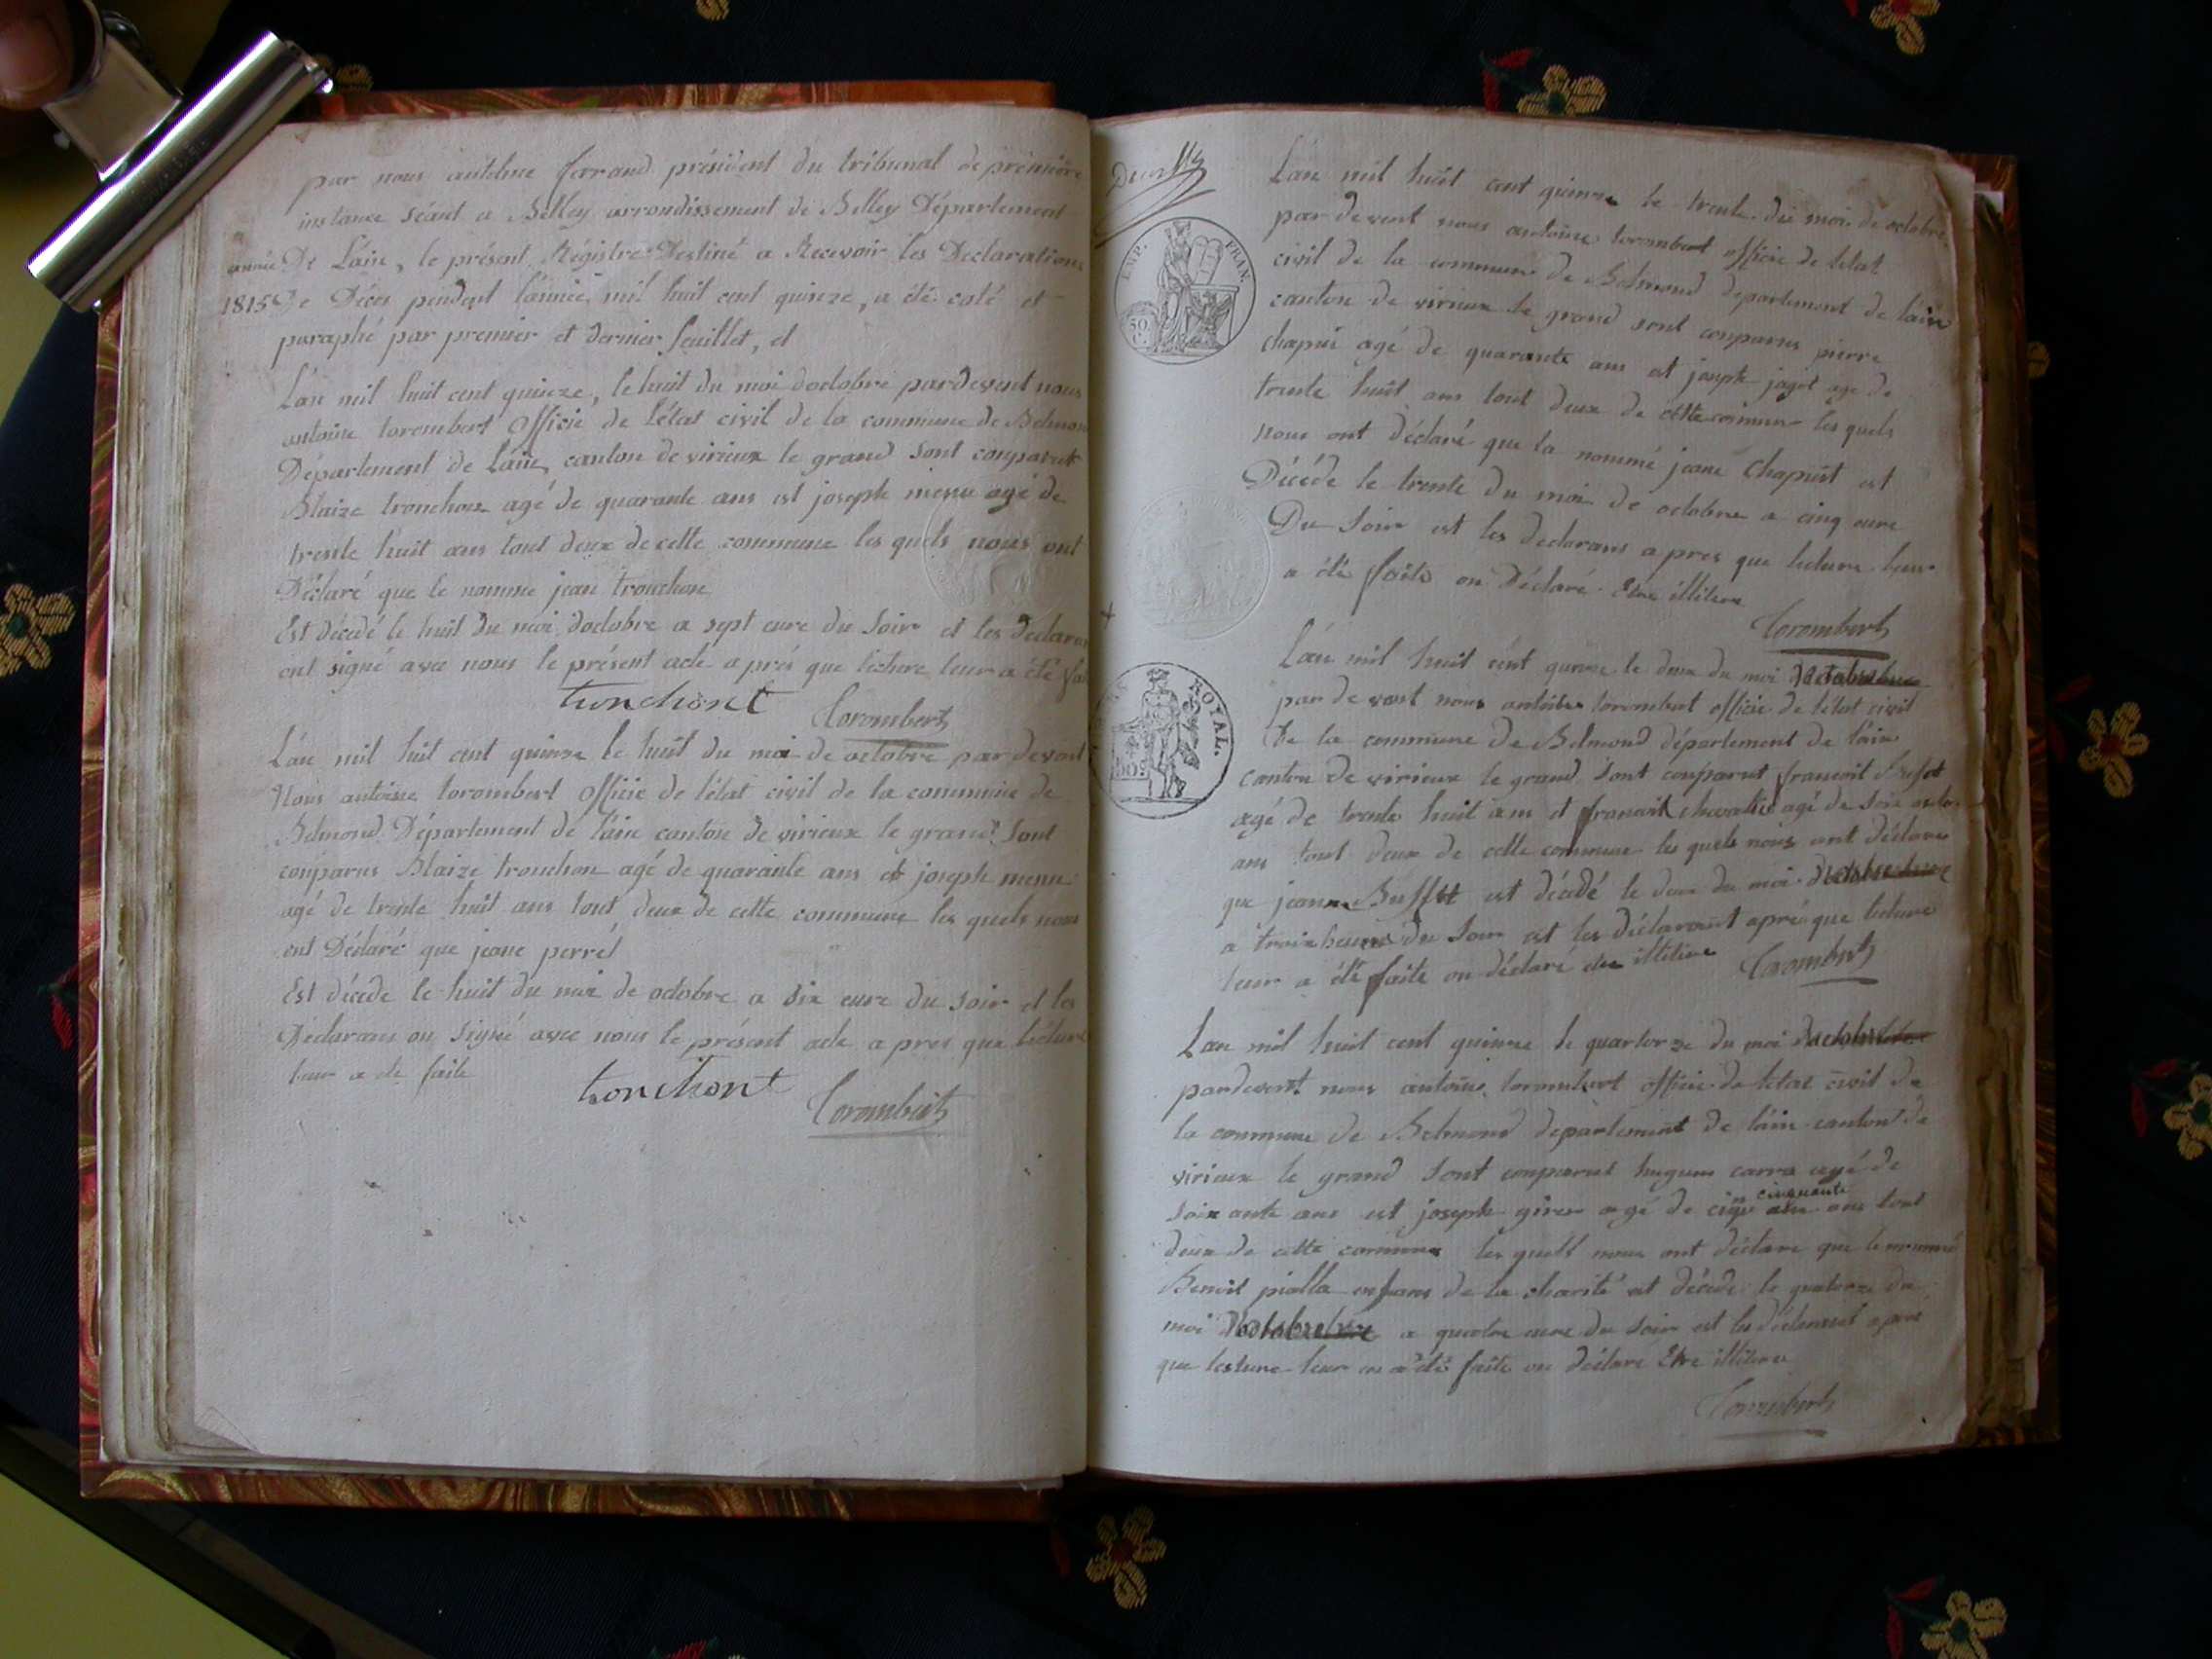 par nous antelme ferrand président du tribunal de première
instance séant a Belley arrondissement de Belley Département
année De Lain, le présent Régistre Destiné a Recevoir les Declarations
1815 De Déces pendent l'année mil huit cent quinze, a été coté et
paraphé par premier et dernier feuillet, et
L'an mil huit cent quinze, le huit du moi doctobre pardevent nous
antoine torombert Officié de L'état civil de la commune de Belmon
Département de Lain, canton de virieux le grand sont comparut
Blaize tronchon agé de quarante ans et joseph menu agé de
trente huit ans tout deux de cette commune les quels nous ont
Déclaré que le nomme jean tronchon
Est décedé le huit du moi doctobre a sept eure du Soir et les declaran
ont signé avec nous le présent acte aprés que lecture leur a été fai
tronchont Torombert
L'an mil huit cent quinze le huit du moi de octobre par devent
Nous antoine torombert Officié de l'état civil de la commune de
Belmond Département de l'ain canton de virieux le grand Sont
comparus Blaize tronchon agé de quarante ans et joseph menu
agé de trente huit ans tout deux de cette commune les quels nous
ont Déclaré que jeane perret
Est décede le huit du moi de octobre a six eure du soir et les
Déclarans on signé avec nous le présent acte apres que lecture
leur a ete faite
tronchont Torombert
L'an mil huit cent quinze le trente du moi de octobre
par devent nous antoine torombert officié de l'état
civil de la commune de Belmond departement de l'ain
canton de virieux le grand sont comparus pierre
chapui agé de quarante ans et joseph jagot age de
trente huit ans tout deux de cette commune les quels
nous ont déclaré que la nommé jeane Chapuit est
Décéde le trente du moi de octobre a cinq eure
Du Soir est les declarans apres que lecture leur
a été faite on Déclaré Etre illitere
Torombert
IMP. FRAN.
50 C.
L'an mil huit cent quinze le deux du moi
par devent nous antoine torombert officié de l'état civil
De la commune de Belmond département de l'ain
canton de virieux le grand, sont comparut francoit Buffet
agé de trente huit ans et francoit chevallié agé de soixante
ans tout deux de cette commune les quels nous ont déclare
que jeanne Buffet est décedé le deux du moi
a troix heures du Soir est les déclarant apré que lecture
leur a été faite on déclaré etre illitere Torombert
ROYAL.
L'an mil huit cent quinze le quartorze du moi
pardevent nous antoine torombert officié de letat civil de
la commune de Belmond departement de l'ain canton de
virieux le grand Sont comparut hugues carra agé de
cinquante
soixante ans est joseph girer agé de ans tout
deux de cette commune les quels nous ont déclare que le nommé
Benoit pialla enfans de la charité est décede le quatorze du
moi a quatre eure du soir est les déclarant apre
que lesture leur en a été faite on déclare Etre illitere
Torombert